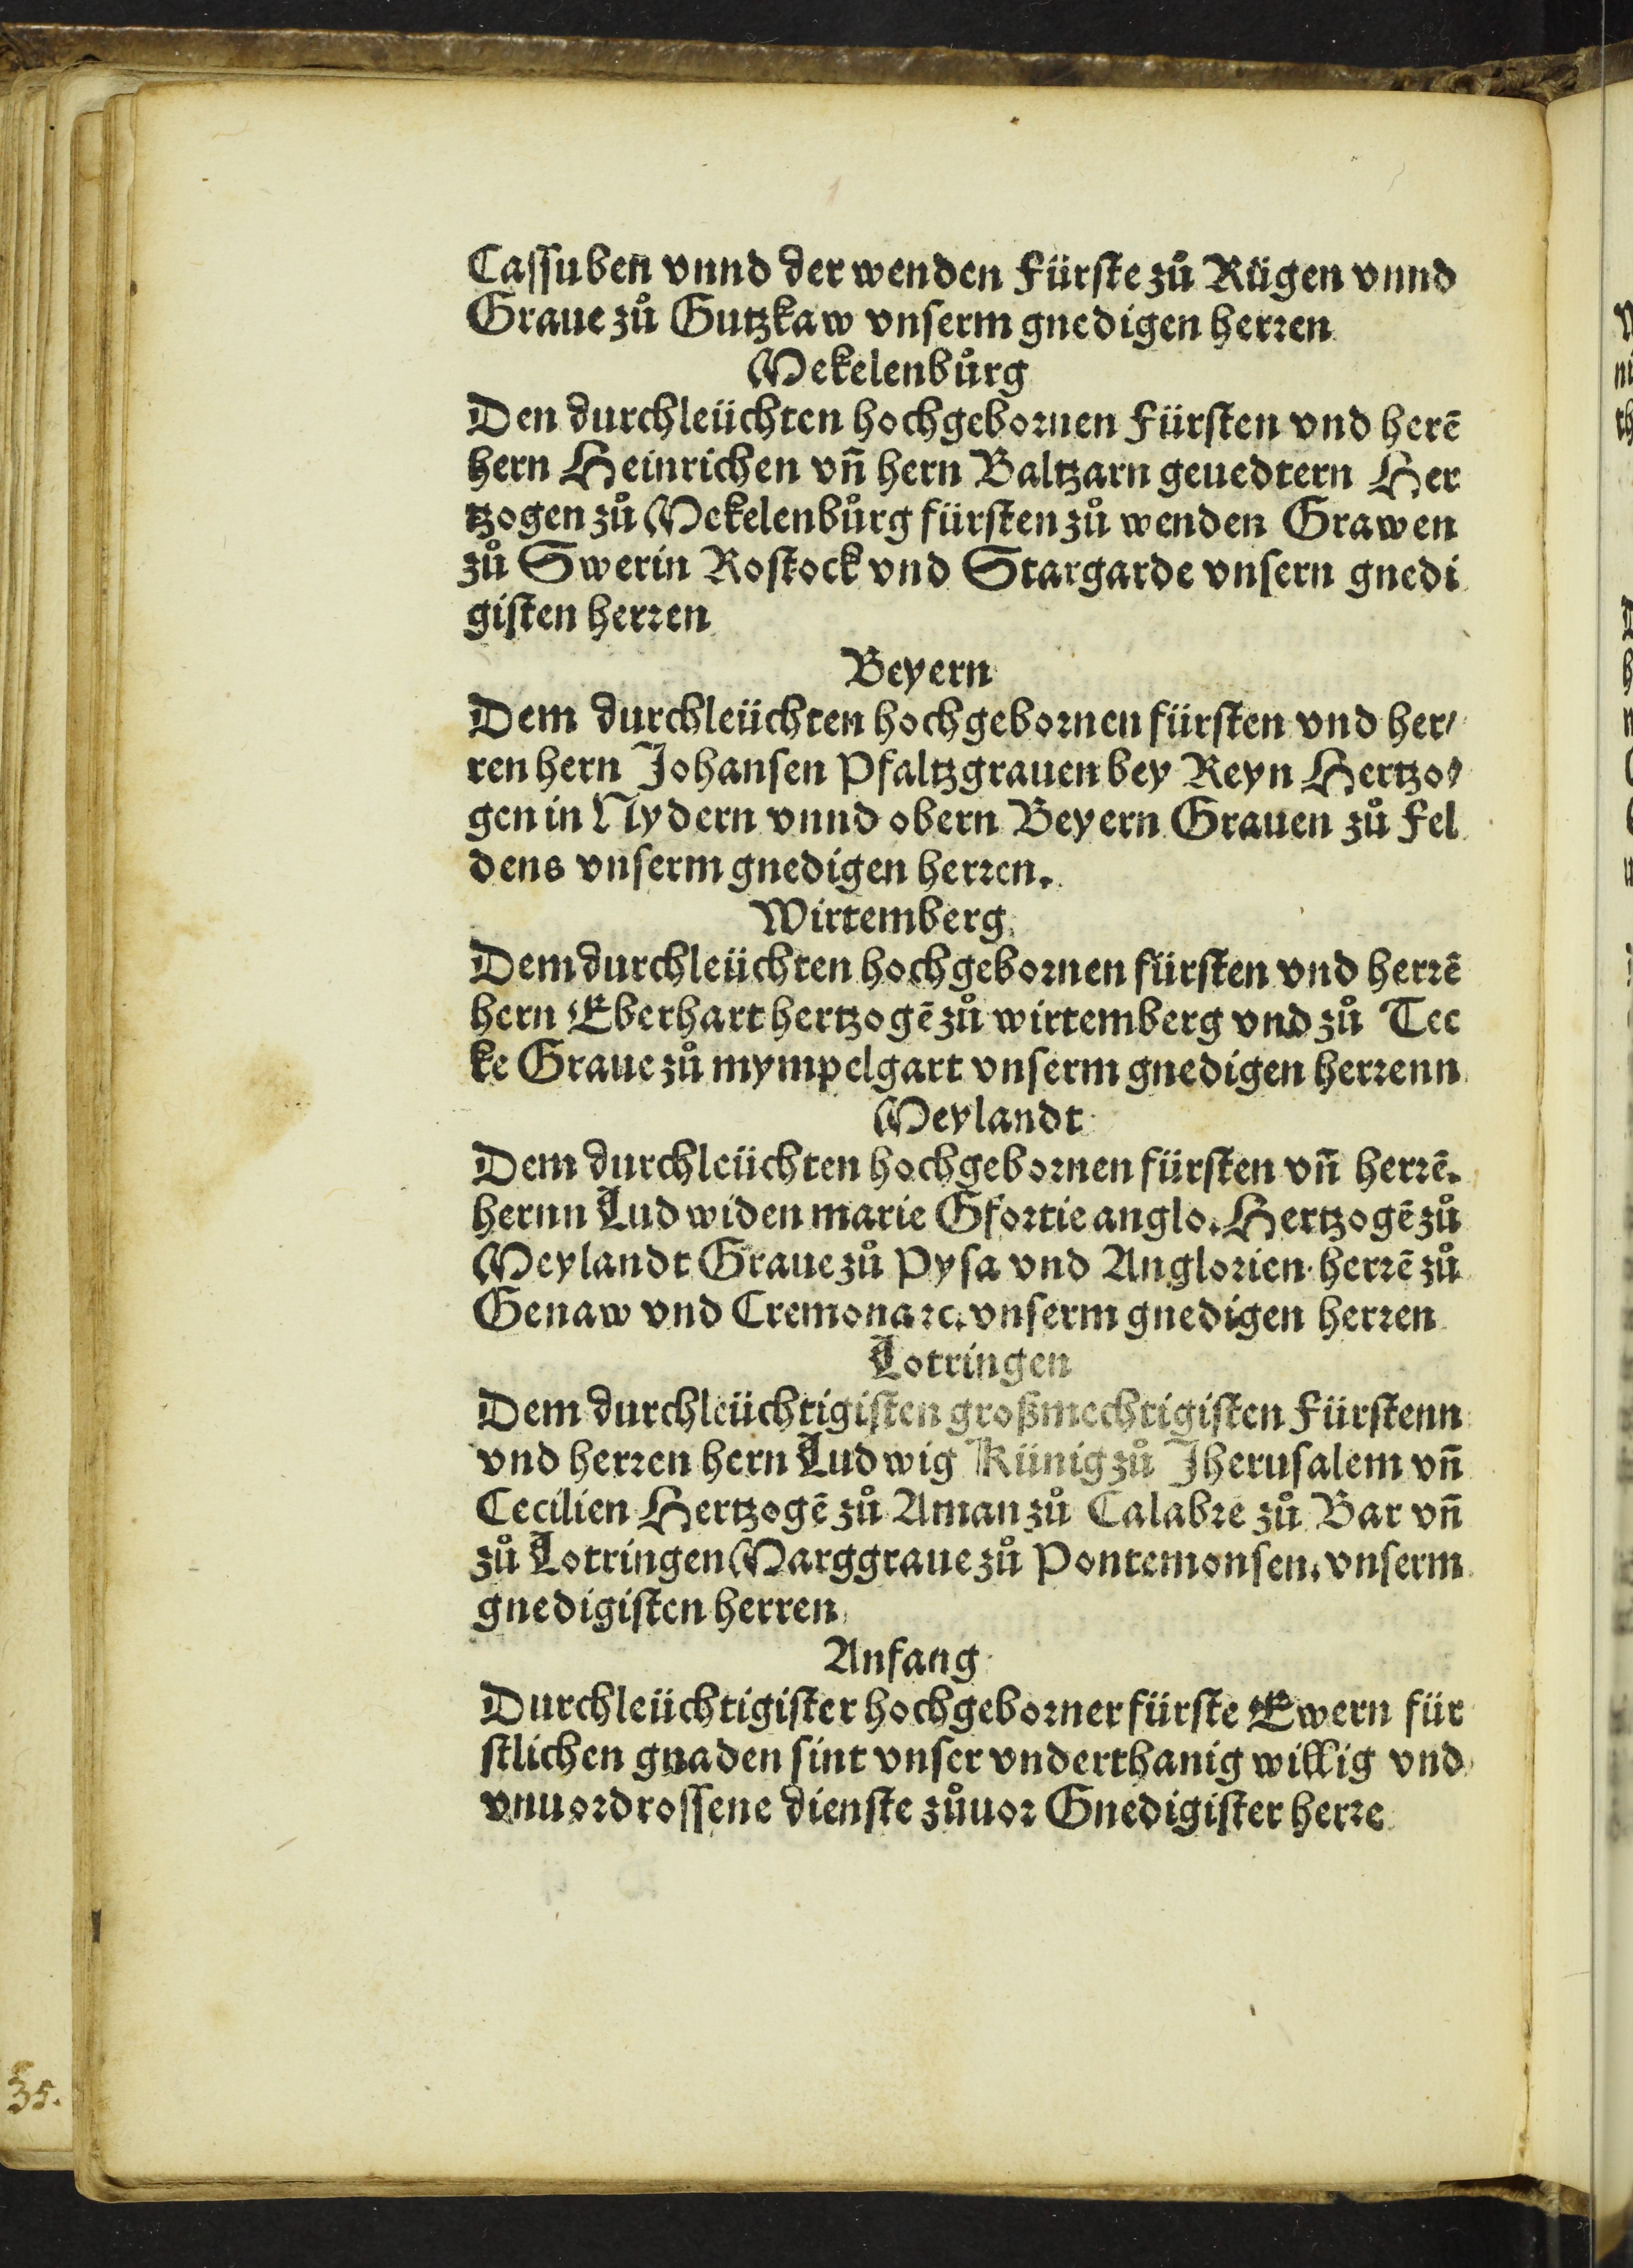 Cassuben vnnd der wenden Fürste zů Rügen vnnd
Graue zů Gutzkaw vnserm gnedigen herren
Mekelenbůrg
Den durchleüchten hochgebornen Fürsten vnd herē
hern Heinrichen vn̄ hern Baltzarn geuedtern Her
tzogen zů Mekelenbůrg fürsten zů wenden Grawen
zů Swerin Rostock vnd Stargarde vnsern gnedi
gisten herren
Beyern
Dem durchleüchten hochgebornen fürsten vnd her/
ren hern Johansen Pfaltzgrauen bey Reyn Hertzo/
gen in Nydern vnnd obern Beyern Grauen zů Fel
dens vnserm gnedigen herren.
Wirtemberg
Dem durchleüchten hochgebornen fürsten vnd herrē
hern Eberhart hertzogē zů wirtemberg vnd zů Tec
ke Graue zů mympelgart vnserm gnedigen herrenn
Meylandt
Dem durchleüchten hochgebornen fürsten vn̄ herrē.
hernn Ludwiden marie Sfortie anglo. Hertzogē zů
Meylandt Graue zů Pysa vnd Anglorien herrē zů
Genaw vnd Cremona ꝛc. vnserm gnedigen herren
Lotringen
Dem durchleüchtigisten großmechtigisten Fürstenn
vnd herren hern Ludwig Künig zů Jherusalem vn̄
Cecilien Hertzogē zů Aman zů Calabre zů Bar vn̄
zů Lotringen Marggraue zů Pontemonsen. vnserm
gnedigisten herren
Anfang
Durchleüchtigister hochgeborner fürste Ewern für
stlichen gnaden sint vnser vnderthanig willig vnd
vnuordrossene dienste zůuor Gnedigister herre
35.